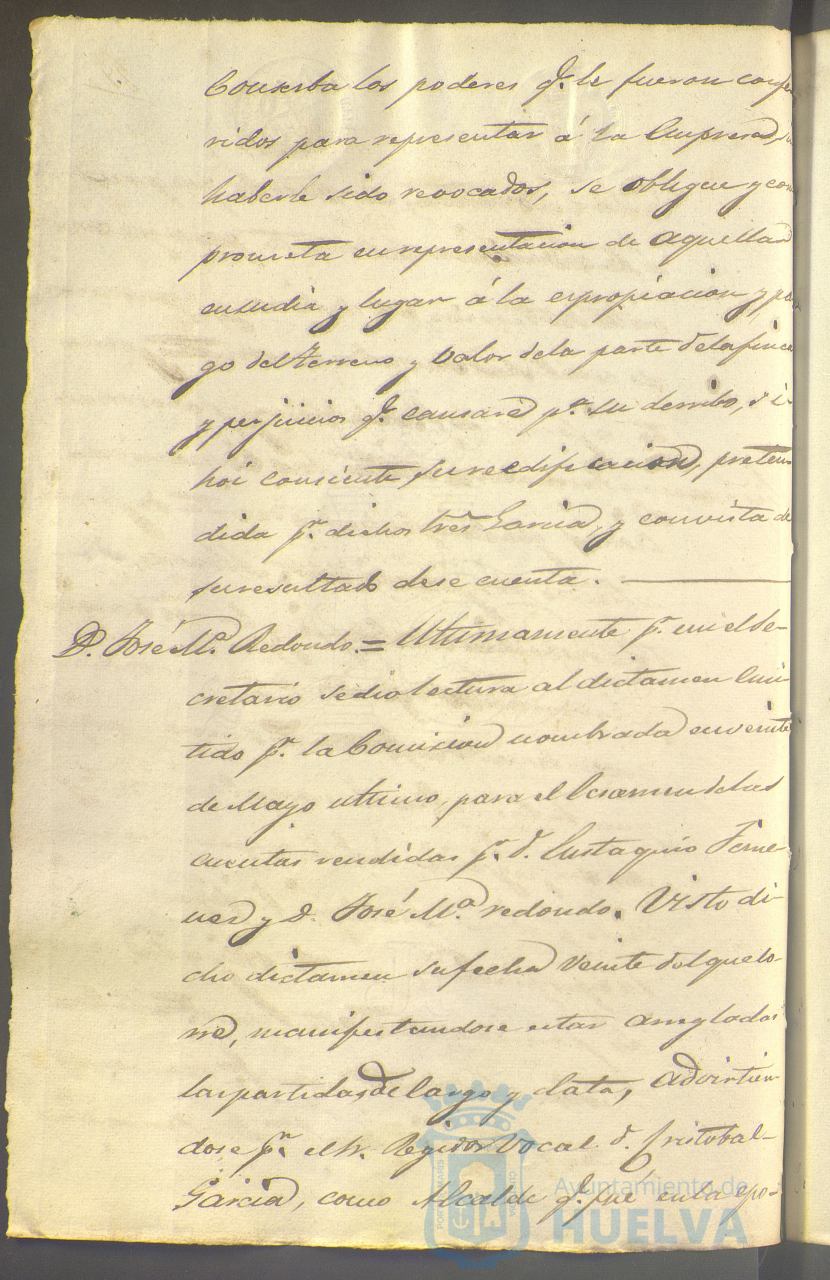 Conserba los poderes q.e le fueron confe
ridos para representar á la Empresa, sin
haberle sido revocados, se obligue y com
prometa en representacion de aquella
en su dia y lugar á la espropiacion y pa
go del terreno y valor de la parte de la finca
y perjuicios q.e causare p.r su derribo, si
hoi consiente su reedificacion, preten
dida p.r dichos tres Garcia, y con vista de
su resultado dese cuenta.
D. José M.a Redondo. = Ultimamente p.r mi el Se-
cretario se dio lectura al dictamen emi
tido p.r la Comision nombrada en veinte
de Mayo ultimo, para el Ecsamen de las
cuentas rendidas p.r D. Eustaquio Jime
nez y D. José M.a redondo. Visto di-
cho dictamen su fecha veinte del que co-
rre, manifestandose estar arregladas
las partidas de cargo y data, advirtien
dose p.r el Sr. Regidor Vocal D. Cristobal
Garcia, como Alcalde q.e fué en la epo-
Ayuntamiento de
HUELVA